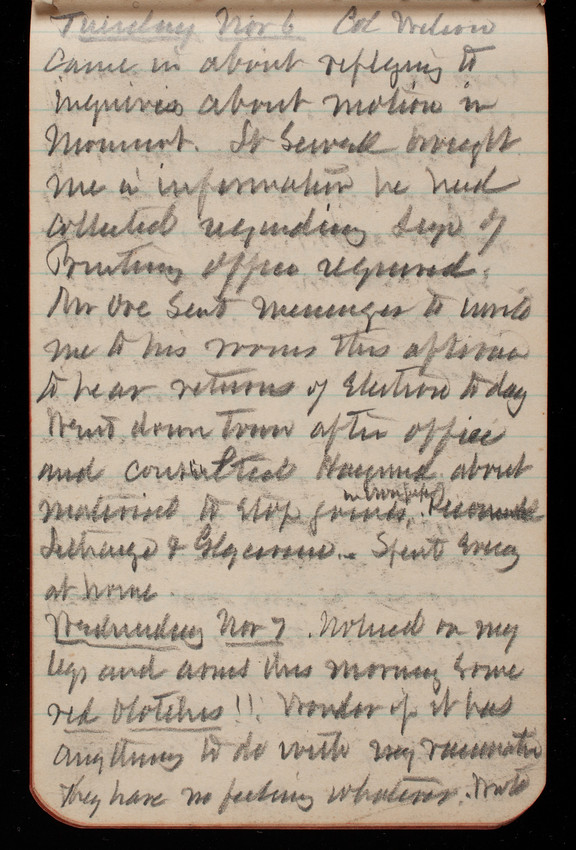 Tuesday Nov 6 Col Wilson
came in about replying to
inquiries about motion in
Monument. Lt Sewell brought
me in information he had
collected regarding size of
Printing office required.
Mr Ore sent messenger to invite
me to his rooms this afternoon
to hear returns of Election today
Went down town after office
and consulted about
material to stop joints,
Litharge & Glycerine. Spent Eveng
at home
Wednesday Nov 7. Noticed on my
legs and arms this morning some
red blotches!! Wonder if it has
anything to do with my
They have no feeling whatever.